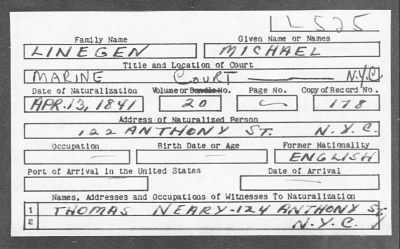 LL525
Family Name Given Name or Names
LINEGEN MICHAEL
Title and Location of Court
MARINE COURT N.Y.C.
Date of Naturalization Volume or Bundle No. Page No. Copy of Record No.
APR. 13, 1841 20 178
Address of Naturalized Person
122 ANTHONY ST. N.Y.C.
Occupation Birth Date or Age Former Nationality
ENGLISH
Port of Arrival in the United States Date of Arrival
Names, Addresses and Occupations of Witnesses To Naturalization
1 THOMAS NEARY-124 ANTHONY ST.
2 N.Y.C.